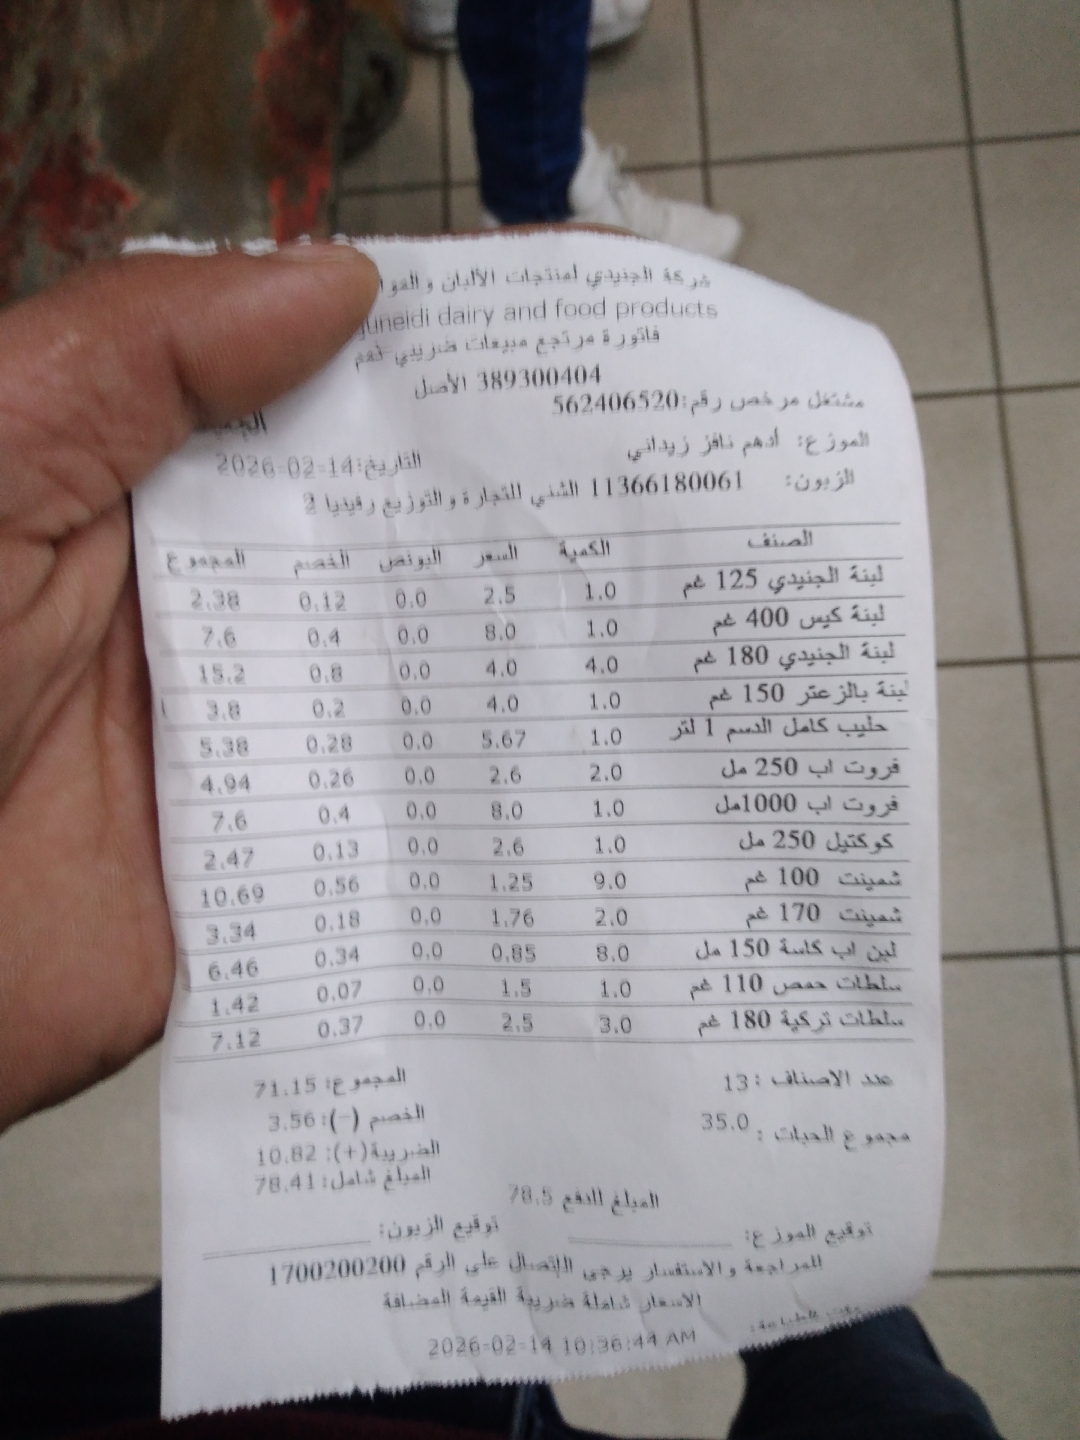 شركة الجنيدي لمنتجات الألبان و المو
juneidi dairy and food products
فاتورة مرتجع مبيعات ضريبي لهم
389300404 الأصل
مشتغل مرخص رقم:562406520
الموزع: أدهم نافز زيداني
التاريخ:2026-02-14
الزبون: 11366180061 الشني للتجارة و التوزيع رفيديا 2
الصنف الكمية السعر البونص الخصم المجموع
لبنة الجنيدي 125 غم 1.0 2.5 0.0 0.12 2.38
لبنة كيس 400 غم 1.0 8.0 0.0 0.4 7.6
لبنة الجنيدي 180 غم 4.0 4.0 0.0 0.8 15.2
لبنة بالزعتر 150 غم 1.0 4.0 0.0 0.2 3.8
حليب كامل الدسم 1 لتر 1.0 5.67 0.0 0.28 5.38
فروت اب 250 مل 2.0 2.6 0.0 0.26 4.94
فروت اب 1000مل 1.0 8.0 0.0 0.4 7.6
كوكتيل 250 مل 1.0 2.6 0.0 0.13 2.47
شمينت 100 غم 9.0 1.25 0.0 0.56 10.69
شمينت 170 غم 2.0 1.76 0.0 0.18 3.34
لبن اب كاسة 150 مل 8.0 0.85 0.0 0.34 6.46
سلطات حمص 110 غم 1.0 1.5 0.0 0.07 1.42
سلطات تركية 180 غم 3.0 2.5 0.0 0.37 7.12
عدد الاصناف : 13 المجموع: 71.15
مجموع الحبات : 35.0 الخصم (-): 3.56
الضريبة(+): 10.82
المبلغ شامل: 78.41
المبلغ للدفع 78.5
توقيع الموزع: توقيع الزبون:
للمراجعة و الاستفسار يرجى الإتصال على الرقم 1700200200
الاسعار شاملة ضريبة القيمة المضافة
وقت الطباعة: 2026-02-14 10:36:44 AM